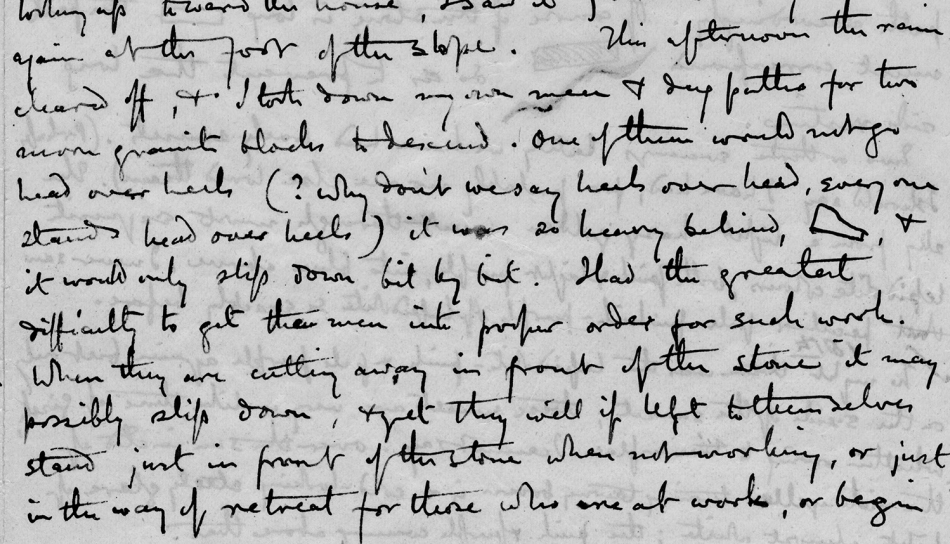 looking up toward this house,
again at the foot of the slope. This afternoon the rain
cleared off, & I took down my own men & dug paths for two
more granite blocks to descend. One of them would not go
head over heels (? Why don't we say heels over head, every one
stands head over heels) it was so heavy behind, , &
it would only slip down bit by bit. I had the greatest
difficulty to get these men into proper order for such work.
When they are cutting away in front of the stone it may
possibly slip down, & yet they will if left to themselves
stand just in front of the stone when not working, or just
in the way of retreat for those who are at work, or begin